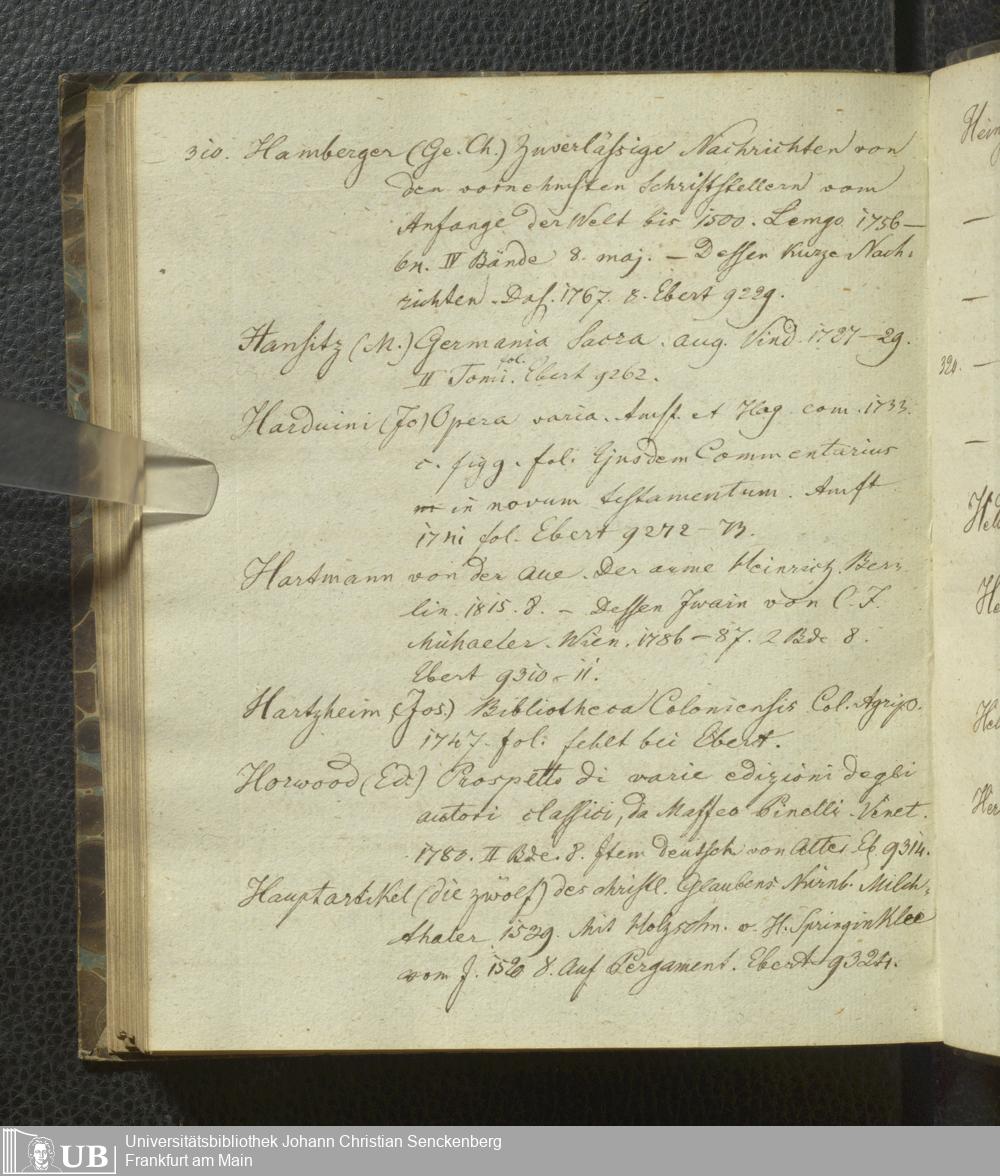 310. Hamberger (Ge. Ch.) Zuverläßige Nachrichten von
den vornehmsten Schriftstellern vom
Anfange der Welt bis 1500. Lemgo 1756–
6n. IV Bände 8. maj. – Dessen Kurze Nach-
richten. Das. 1767. 8. Ebert 9229.
Hansitz (M.) Germania Sacra. aug. Vind. 1727–29.
II Tomi. fol. Ebert 9262.
Harduini (Jo) Opera varia. Amst. et Hag. com. 1733.
c. figg. fol. Ejusdem Commentarius
in novum testamentum. Amst
1741 fol. Ebert 9272–73.
Hartmann von der Aue. Der arme Heinrich. Ber-
lin. 1815. 8. – Dessen Iwain von C. F.
Michaeler. Wien. 1786–87. 2 Bde 8.
Ebert 9310–11.
Hartzheim (Jos.) Bibliotheca Coloniensis Col. Agrip.
1747. fol. fehlt bei Ebert.
Horwood (Ed.) Prospetto di varie edizioni degli
autori classici, da Maffeo Pinelli. Venet.
1780. II Bde. 8. Item deutsch von Alter. Eb 9314.
Hauptartikel (die zwölf) des christl. Glaubens Nürnb. Milch-
thaler 1539. Mit Holzschn. v. H. Springinklee
vom J. 1520 8. Auf Pergament. Ebert 9324.
320.
UB
Universitätsbibliothek Johann Christian Senckenberg
Frankfurt am Main